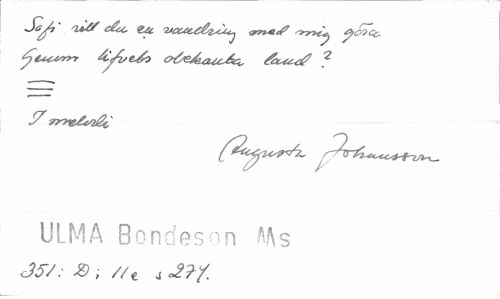 Säg vill du en vandring med mig göra
Genom lifvets obekanta land?
I melodi
Augusta Johansson
ULMA Bondeson Ms
351: D; 11e s 274.